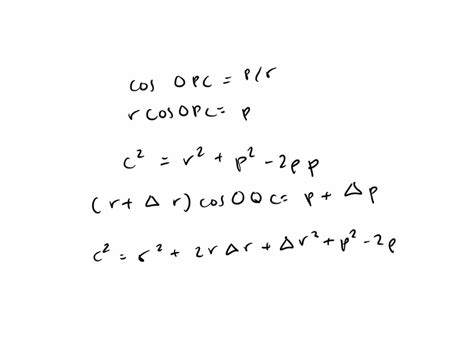 cos OPC = P/r
r cos OPC = p
c² = r² + p² - 2ρp
(r + Δr) cos OQC = p + Δp
c² = r² + 2rΔr + Δr² + p² - 2ρ